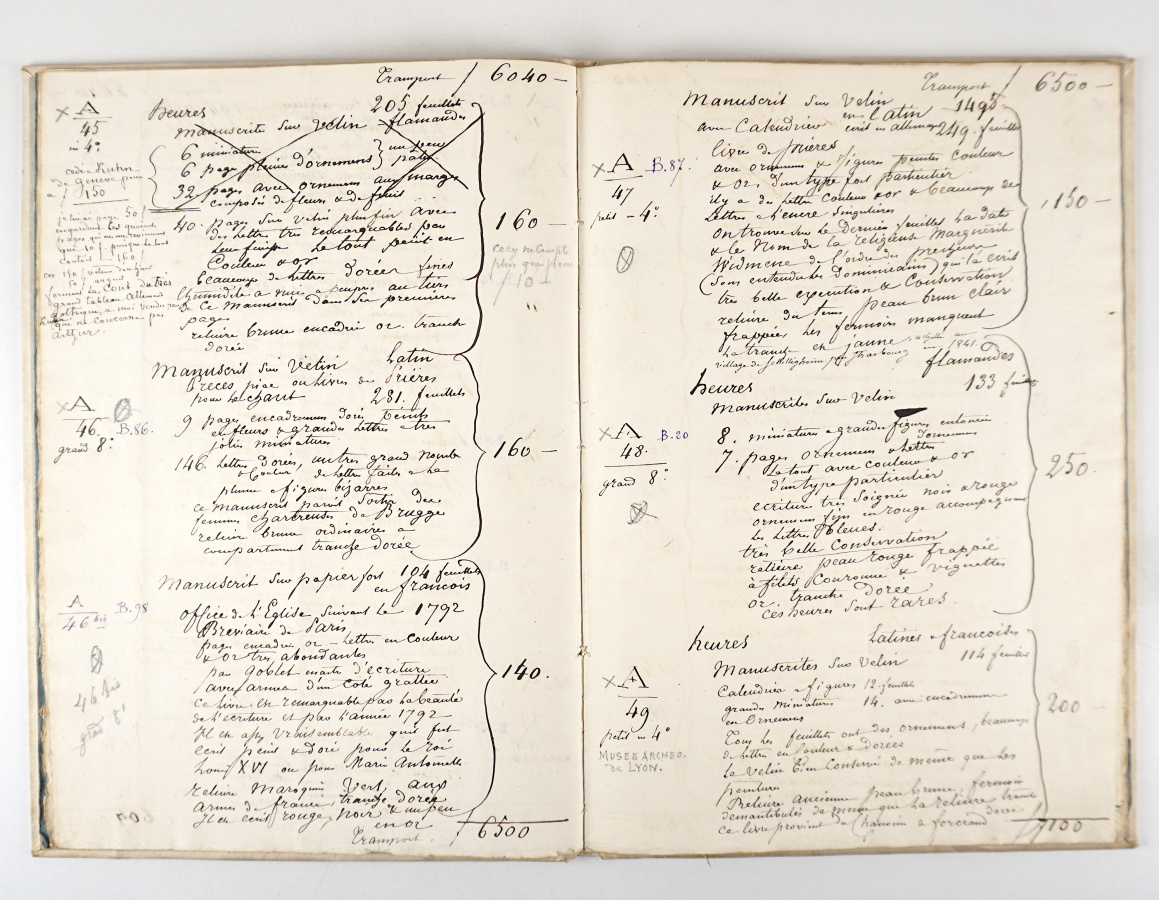 Transport 6040 —
× A
45
in 4º
heures 205 feuillets
manuscrites sur vélin flamandes
6 miniatures
6 pages pleines d'ornemens } un peu
32 pages avec ornemens aux marges
composé de fleurs & de fruits
40. pages sur vélin plus fin avec
des Lettres très remarquables par
Leur finesse Le tout peint en
Couleur & or
beaucoup de Lettres dorées fines
L'humidité a nui a peu près au tiers
de Ce Manuscrit dans Ses premières
pages
reliure brune encadrée or. tranche
dorée
160 —
cédé à Kuhn
de Genève pour
150
Manuscrit Sur Vélin Latin
Preces piae ou Livres de Prières
pour Le chant 281. feuillets
× A
46. B.86.
grand 8º
9 pages encadremens dorés peints
en fleurs & grandes Lettres &
jolies miniatures
146. Lettres dorées, un très grand nombre
de Lettres faites a La
plume & figures bizarres
ce manuscrit paroit Sortir des
femmes Chartreuses de Brugge
reliure brune ordinaire a
compartiment tranche dorée
160 —
Manuscrit Sur papier fort 104 feuillets
en francois
A
46 bis B.98
46 bis
grand 8º
office de l'Eglise Suivant Le 1792
Breviaire de Paris
pages encadrées or — Lettres en Couleur
& or très abondantes
par Goblet maitre d'écriture
(avec armes d'un Coté grattées
ce livre est remarquable par La beauté
de l'écriture et par l'année 1792
Il est assez Vraisemblable qu'il fut
écrit peint & doré pour Le roi
Louis XVI ou pour Marie Antoinette
reliure Maroquin Vert, aux
armes de france, tranche dorée
Il est écrit rouge, noir & un peu
en or
140.
Transport. 6500
Transport 6500 —
Manuscrit Sur Vélin en Latin 1495.
avec Calendrier écrit en allemand 249. feuillets
× A B.87.
47
petit in 4º.
livre de prières
avec ornemens & figures peintes Couleur
& or d'un type fort particulier
il y a des Lettres Couleur & or & beaucoup de
Lettres a l'encre Singulières
on trouve Sur Le Dernier feuillet La date
& Le Nom de La religieuse Marguerite
Widmene de l'ordre des Precheurs
(Sous entendu des Dominicains) qui l'a écrit
très belle exécution & Conservation
reliure du tems peau brun clair
frappée Les fermoirs manquent
La tranche en jaune,
village de Schiltigheim Strasbourg en 1841.
150 —
heures flamandes
Manuscrites Sur Vélin 133 feuillets
× A B.20
48.
grand 8º.
8. miniatures & grandes figures entourées
d'ornemens
7. pages ornemens & Lettres
Le tout avec couleur & or
d'un type particulier
écriture très Soignée noir & rouge
ornemens fins en rouge accompagnant
Les Lettres bleues.
très belle Conservation
reliure peau rouge frappée
à filets Couronne & vignettes
or. tranche dorée
Ces heures Sont rares.
250.
heures Latines & francoises
Manuscrites Sur Vélin 114 feuillets
× A
49
petit in 4º
MUSEE ARCHEO.
de LYON.
Calendrier & figures 12. feuillets
grandes Miniatures 14. avec encadremens
en Ornemens
Tous Les feuillets ont des ornemens, beaucoup
de Lettres en Couleur & dorées
Le Vélin bien Conservé de même que Les
peintures
Reliure ancienne peau brune, fermoirs
démantibulés de même que La reliure tranche
dorée
ce livre provient du Chanoine de forcrand
200 —
7100